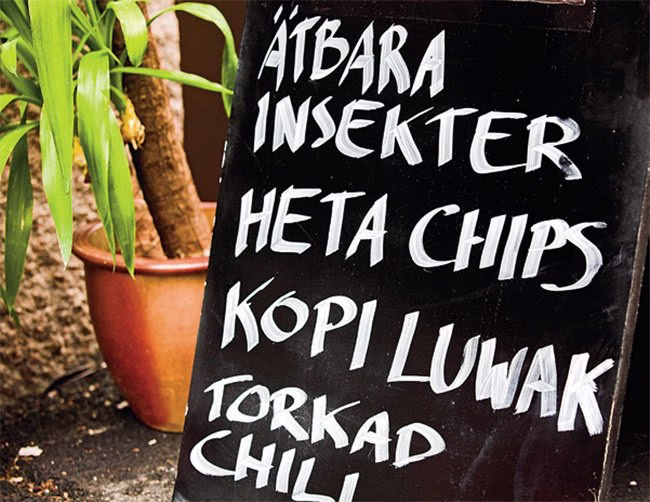 ÄTBARA
INSEKTER
HETA CHIPS
KOPI LUWAK
TORKAD
CHILI